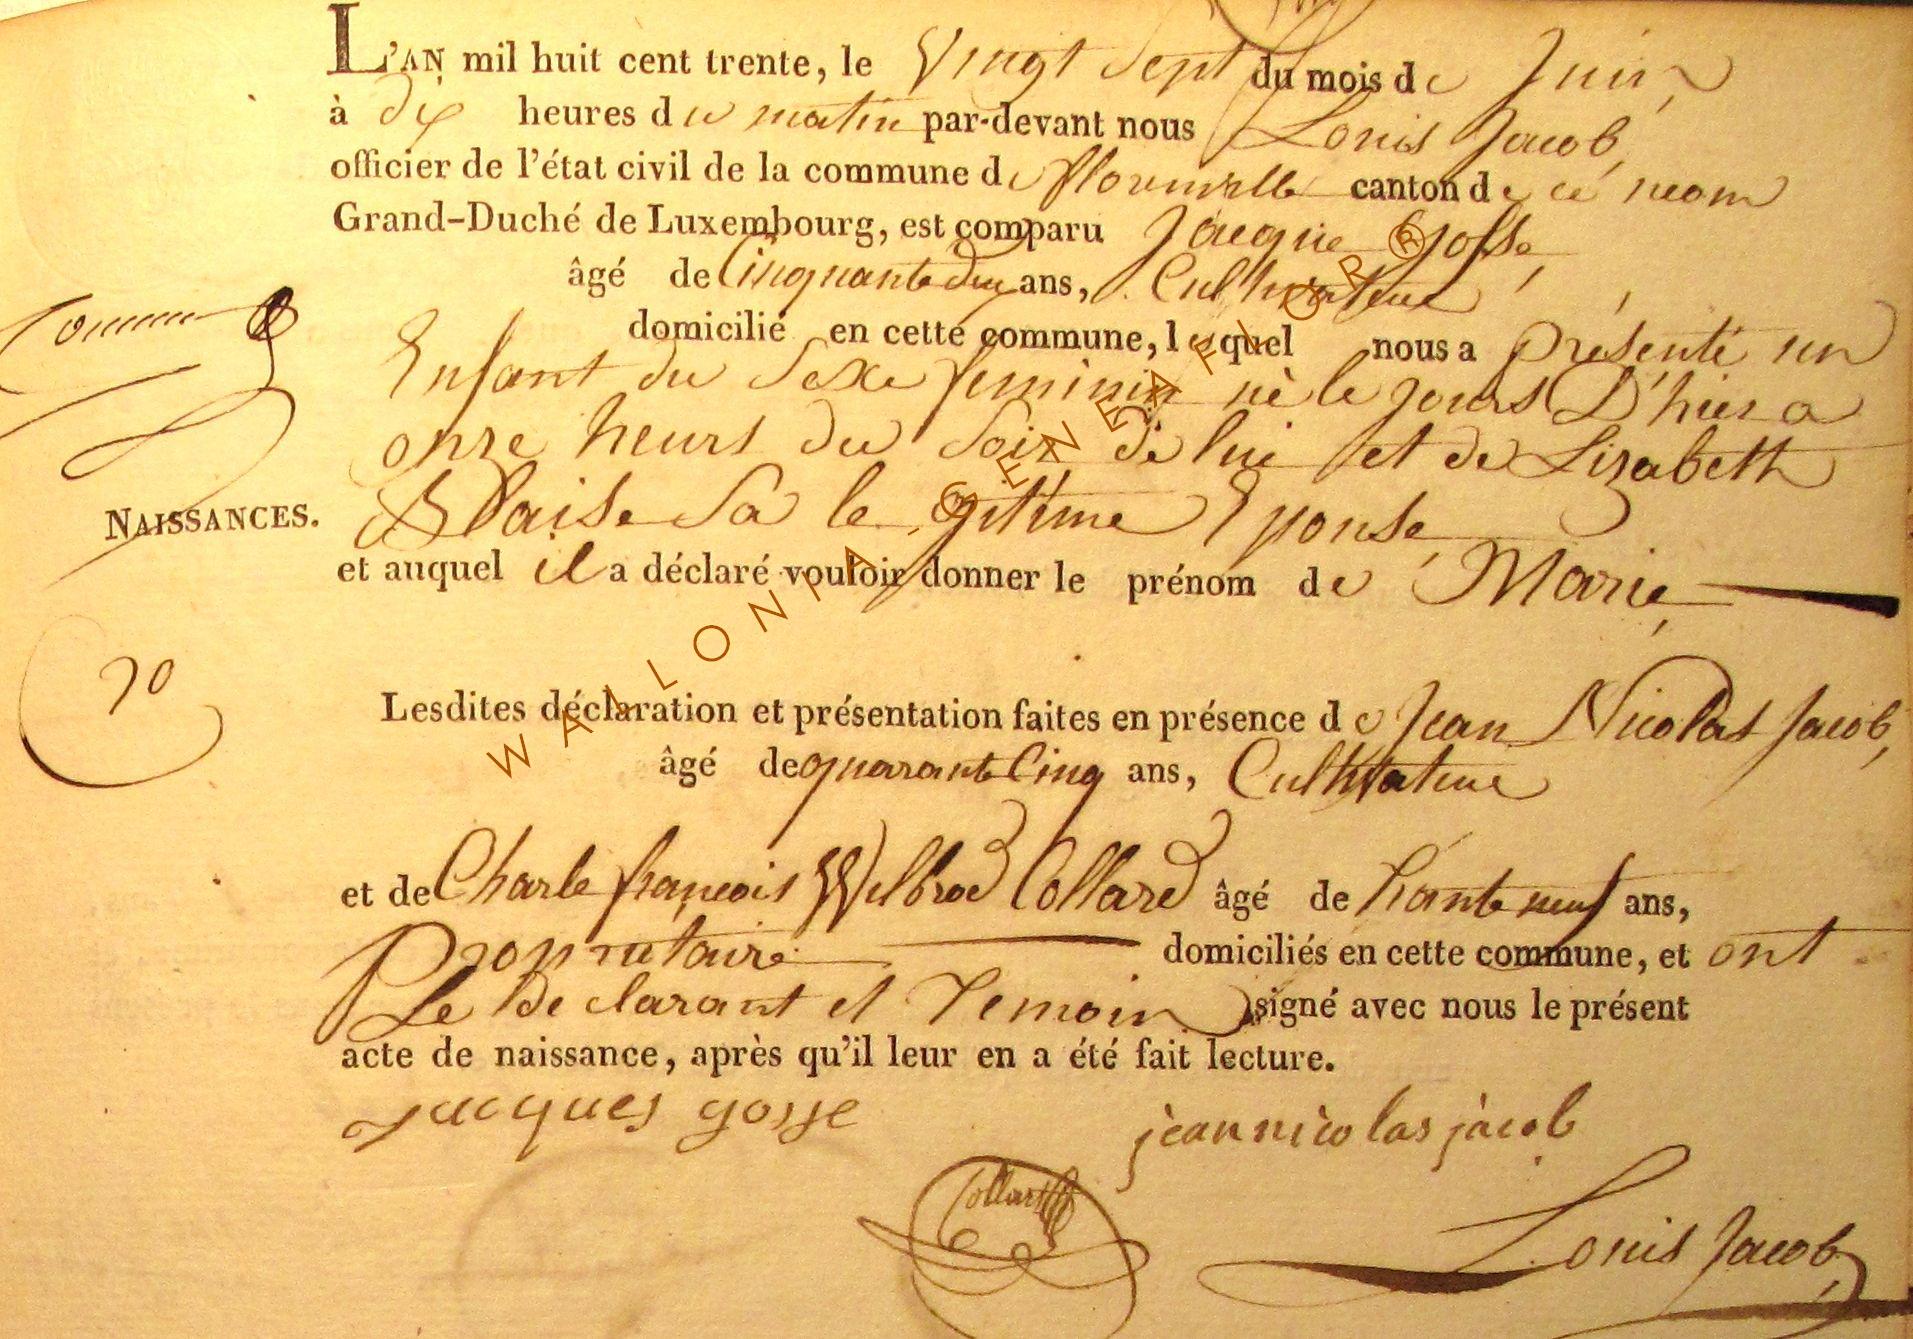 L'AN mil huit cent trente, le Vingt Sept du mois de Juin
à dix heures du matin par-devant nous Louis Jacob,
officier de l'état civil de la commune de florenville canton de cé nom
Grand-Duché de Luxembourg, est comparu Jacque Gosse,
âgé de Cinquante deux ans, Cultivateur
domicilié en cette commune, lequel nous a présenté un
Enfant du Sexe feminin né le jours D'hier a
onze heurs du Soir de lui et de Lizabeth
Blaise Sa le gitime Epouse,
NAISSANCES.
et auquel il a déclaré vouloir donner le prénom de Marie,
70
Lesdites déclaration et présentation faites en présence de Jean Nicolas Jacob,
âgé de quarante Cinq ans, Cultivateur
et de Charle françois Wilbrod Collard âgé de trante neuf ans,
Proprietaire domiciliés en cette commune, et ont
Le De clarant et Temoin signé avec nous le présent
acte de naissance, après qu'il leur en a été fait lecture.
Jacques gosse
jean nicolas jacob
Collard
Louis Jacob
WALLONIA-GENEAFLOR®